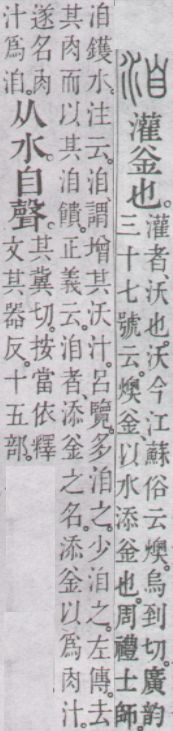 洎 灌釜也。
灌者、沃也。沃今江蘇俗云燠。烏到切。廣韵
三十七號云。燠釜、以水添釜也。周禮士師。
洎鑊水。注云。洎謂增其沃汁。呂覽。多洎之。少洎之。左傳。去
其肉而以其洎饋。正義云。洎者、添釜之名。添釜以爲肉汁。
遂名肉
汁爲洎。
从水自聲。
其冀切。按當依釋
文其器反。十五部。